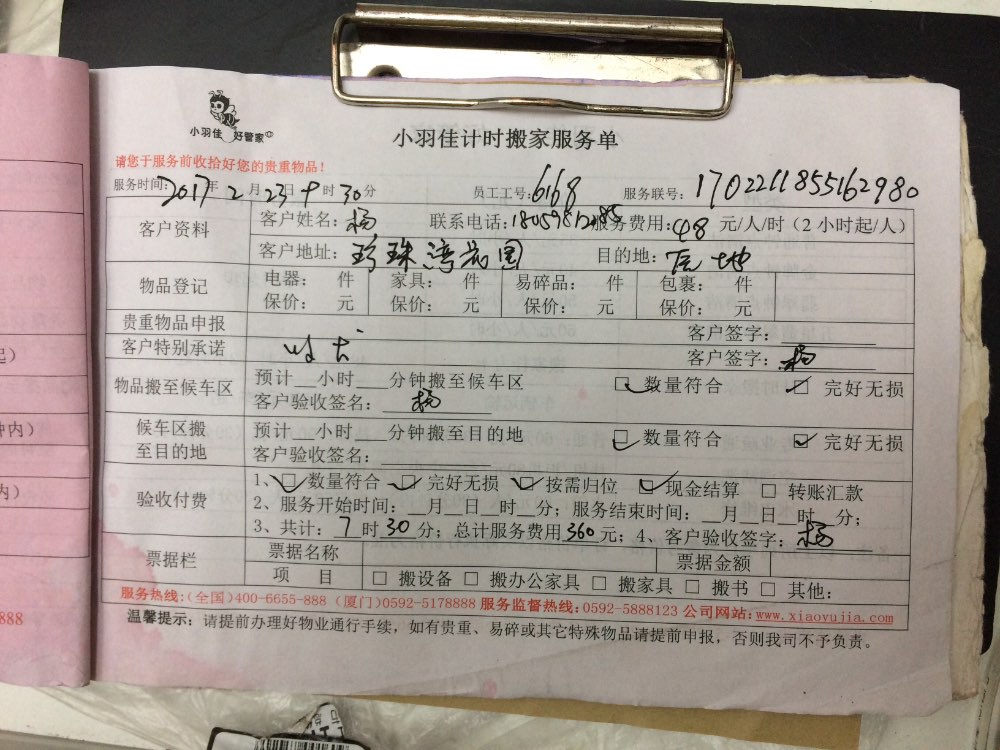 小羽佳 好管家
小羽佳计时搬家服务单
请您于服务前收拾好您的贵重物品!
服务时间:2017年2月23日9时30分 员工工号:6168 服务联号:1702211855162980
客户资料 客户姓名:杨 联系电话: 服务费用:48元/人/时(2小时起/人)
客户地址:珍珠湾花园 目的地:
物品登记 电器: 件 家具: 件 易碎品: 件 包裹: 件
保价: 元 保价: 元 保价: 元 保价: 元
贵重物品申报 客户签字:
客户特别承诺 客户签字:杨
物品搬至候车区 预计__小时___分钟搬至候车区 □数量符合 □完好无损
客户验收签名:杨
候车区搬至目的地 预计__小时___分钟搬至目的地 □数量符合 □完好无损
客户验收签名:
验收付费 1、□数量符合 □完好无损 □按需归位 □现金结算 □转账汇款
2、服务开始时间:__月__日__时__分;服务结束时间:__月__日__时__分;
3、共计:7时30分;总计服务费用360元;4、客户验收签字:杨
票据栏 票据名称 票据金额
项 目 □搬设备 □搬办公家具 □搬家具 □搬书 □其他:
服务热线:(全国)400-6655-888 (厦门)0592-5178888 服务监督热线:0592-5888123 公司网站:www.xiaoyujia.com
温馨提示:请提前办理好物业通行手续,如有贵重、易碎或其它特殊物品请提前申报,否则我司不予负责。
起)
钟内)
内)
888